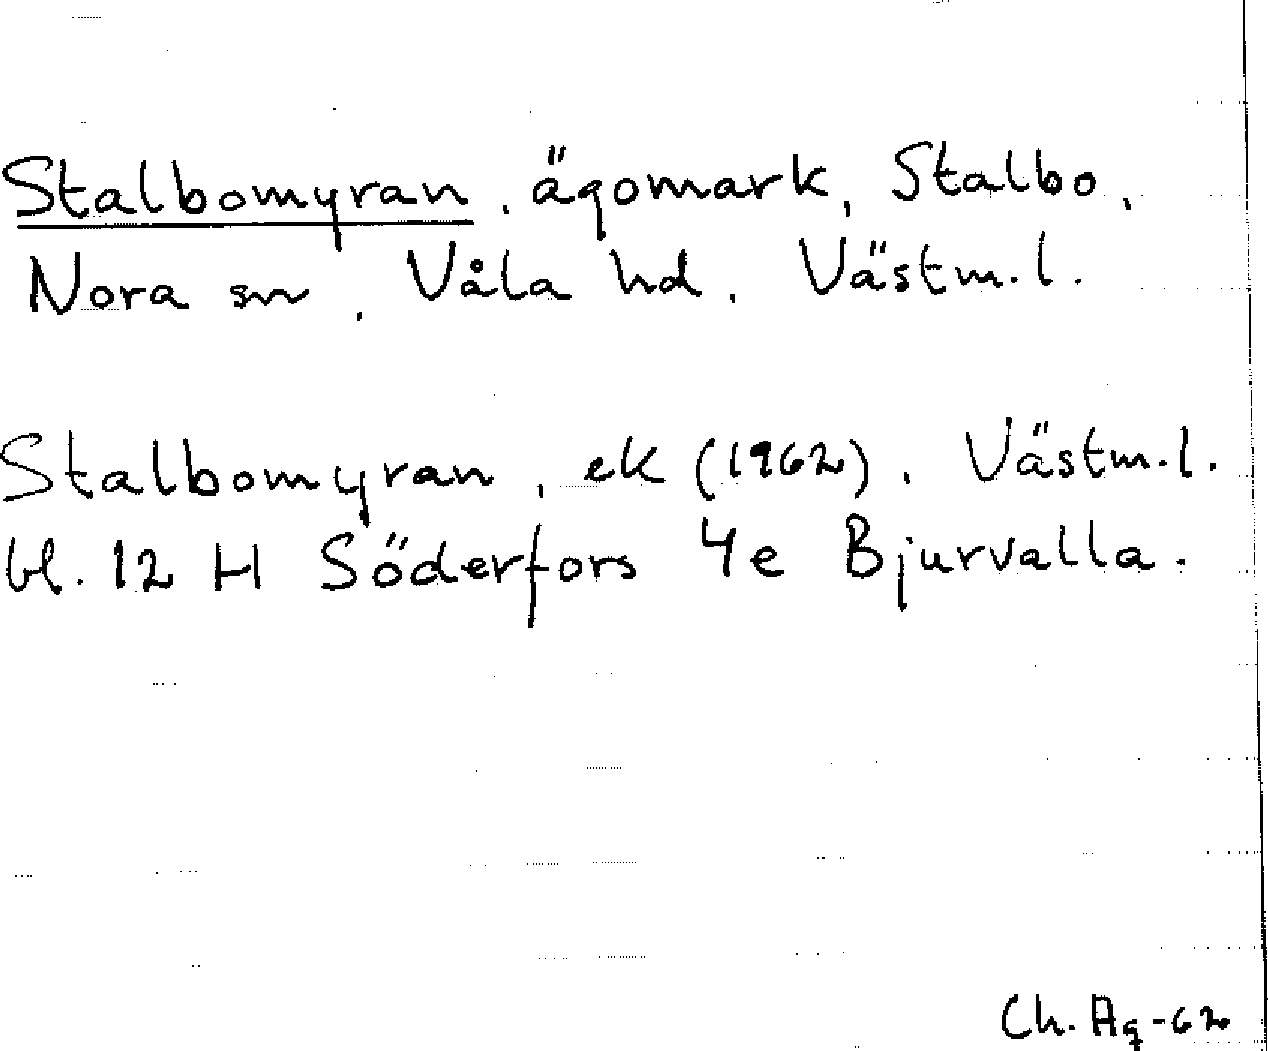 Stalbomyran, ägomark, Stalbo,
Nora sn, Våla hd, Västm.l.
Stalbomyran, ek (1962), Västm.l.
bl. 12 H Söderfors 4e Bjurvalla.
Ch. Ag -62